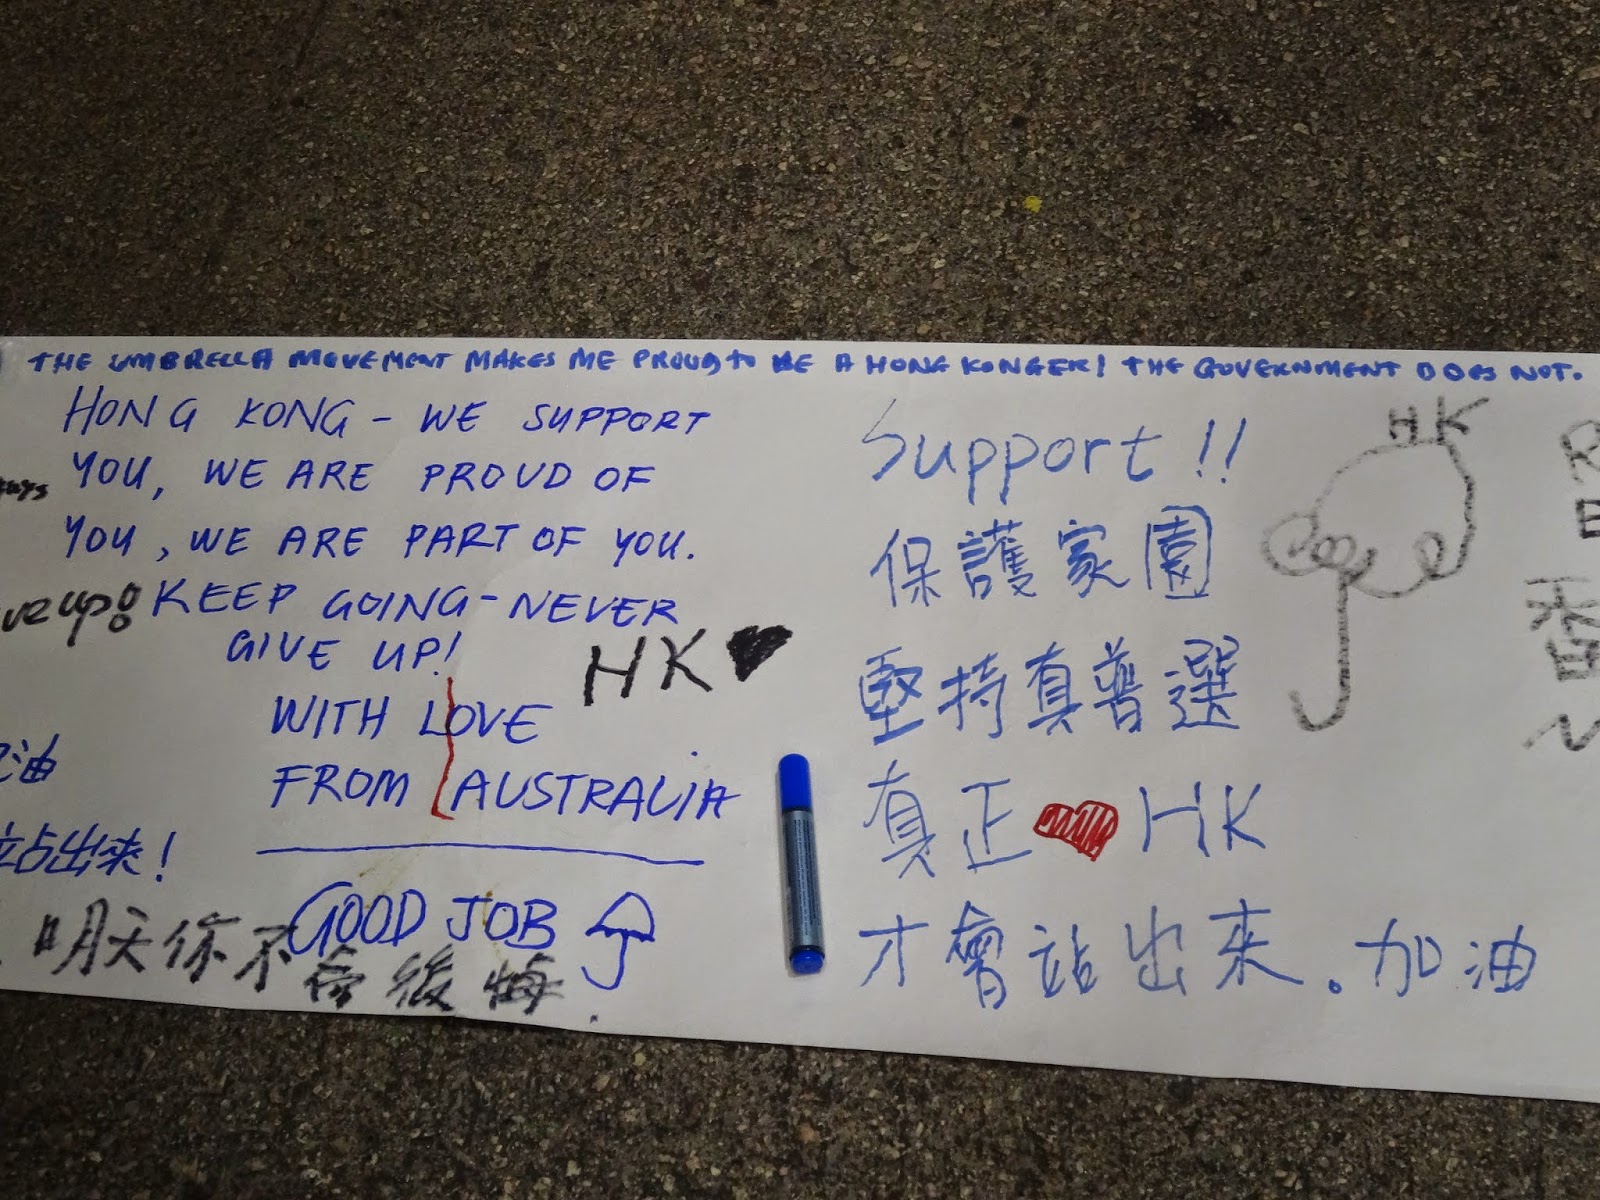 THE UMBRELLA MOVEMENT MAKES ME PROUD TO BE A HONG KONGER! THE GOVERNMENT DOES NOT.
HONG KONG - WE SUPPORT
YOU, WE ARE PROUD OF
YOU, WE ARE PART OF YOU.
KEEP GOING - NEVER
GIVE UP!
WITH LOVE
FROM AUSTRALIA
HK
GOOD JOB
up!
油
站出来!
明天你不會後悔.
Support!!
保護家園
堅持真普選
真正 HK
才會站出來。加油
HK